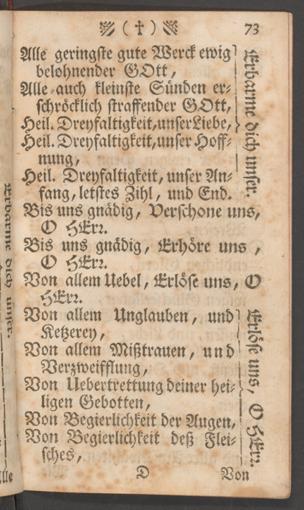 ( † ) 73
Alle geringste gute Werck ewig
belohnender GOtt,
Alle auch kleinste Sünden er-
schröcklich straffender GOtt,
Heil. Dreyfaltigkeit, unser Liebe,
Heil. Dreyfaltigkeit, unser Hoff-
nung,
Heil. Dreyfaltigkeit, unser An-
fang, letstes Zihl, und End.
Erbarme dich unser.
Bis uns gnädig, Verschone uns,
O HErr.
Bis uns gnädig, Erhöre uns,
O HErr.
Von allem Uebel, Erlöse uns, O
HErr.
Von allem Unglauben, und
Ketzerey,
Von allem Mißtrauen, und
Verzweifflung,
Von Uebertrettung deiner hei-
ligen Gebotten,
Von Begierlichkeit der Augen,
Von Begierlichkeit deß Flei-
sches,
Erlöse uns, O HErr.
D Von
Erbarme dich unser.